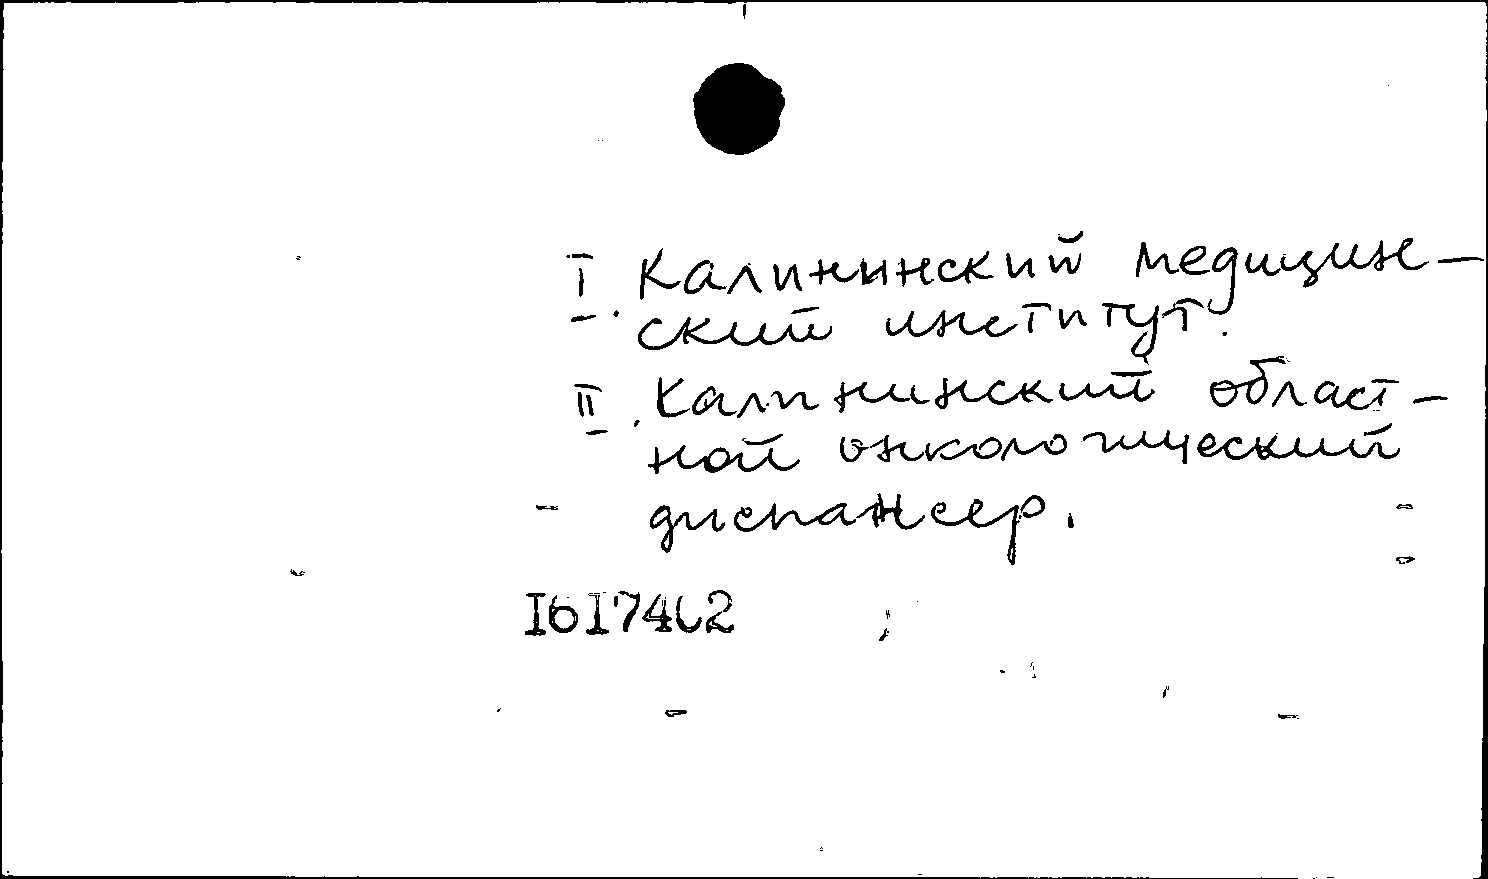 I. Калининский медицин-
ский институт.
II. Калининский област-
ной онкологический
диспансер.
I6I7402